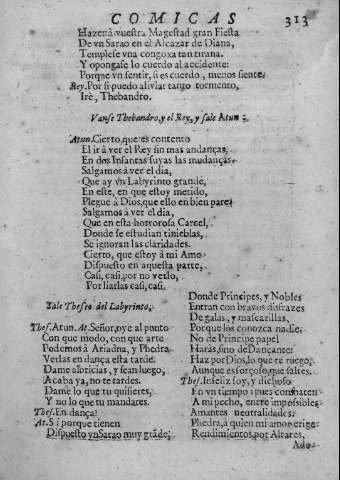 COMICAS
313
Hazen à vuestra Magestad gran Fiesta
De vn Sarao en el Alcazar de Diana,
Templese vna congoxa tan tirana.
Y opongase lo cuerdo al accidente:
Porque vn sentir, si es cuerdo, menos siente.
Rey. Por si puedo aliviar tanto tormento,
Irè, Thebandro.
Vanse Thebandro, y el Rey, y sale Atun:
Atun. Cierto, que es contento
El ir à ver el Rey sin mas andanças,
En dos Infantas suyas las mudanças.
Salgamos à ver el dia,
Que ay vn Labyrinto grande,
En este, en que estoy metido,
Plegue à Dios, que ello en bien pare:
Salgamos à ver el dia,
Que en esta horrorosa Carcel,
Donde se estudian tinieblas,
Se ignoran las claridades.
Cierto, que estoy à mi Amo
Dispuesto en aquesta parte,
Casi, casi, por no verlo,
Por fiarlas casi, casi.
Sale Theseo del Labyrinto.
Thes. Atun. At. Señor, oye al punto
Con que modo, con que arte
Podemos à Ariadna, y Phedra
Verlas en dança esta tarde.
Dame albricias, y sean luego,
Acaba ya, no te tardes.
Dame lo que tu quisieres,
Y no lo que tu mandares.
Thes. En dança?
At. Si porque tienen
Dispuesto vn Sarao muy grāde,
Donde Principes, y Nobles
Entran con bravos disfrazes
De galas, y mascarillas,
Porque los conozca nadie.
No de Principe papel
Haràs, sino de Dançante:
Haz por Dios, lo que te ruego,
Aunque es forçoso, que saltes.
Thes. Infeliz soy, y dichoso
En vn tiempo: pues combaten
A mi pecho, entre impossibles
Amantes neutralidades.
Phedra, à quien mi amor erige
Rendimientos, por Altares,
Ado-